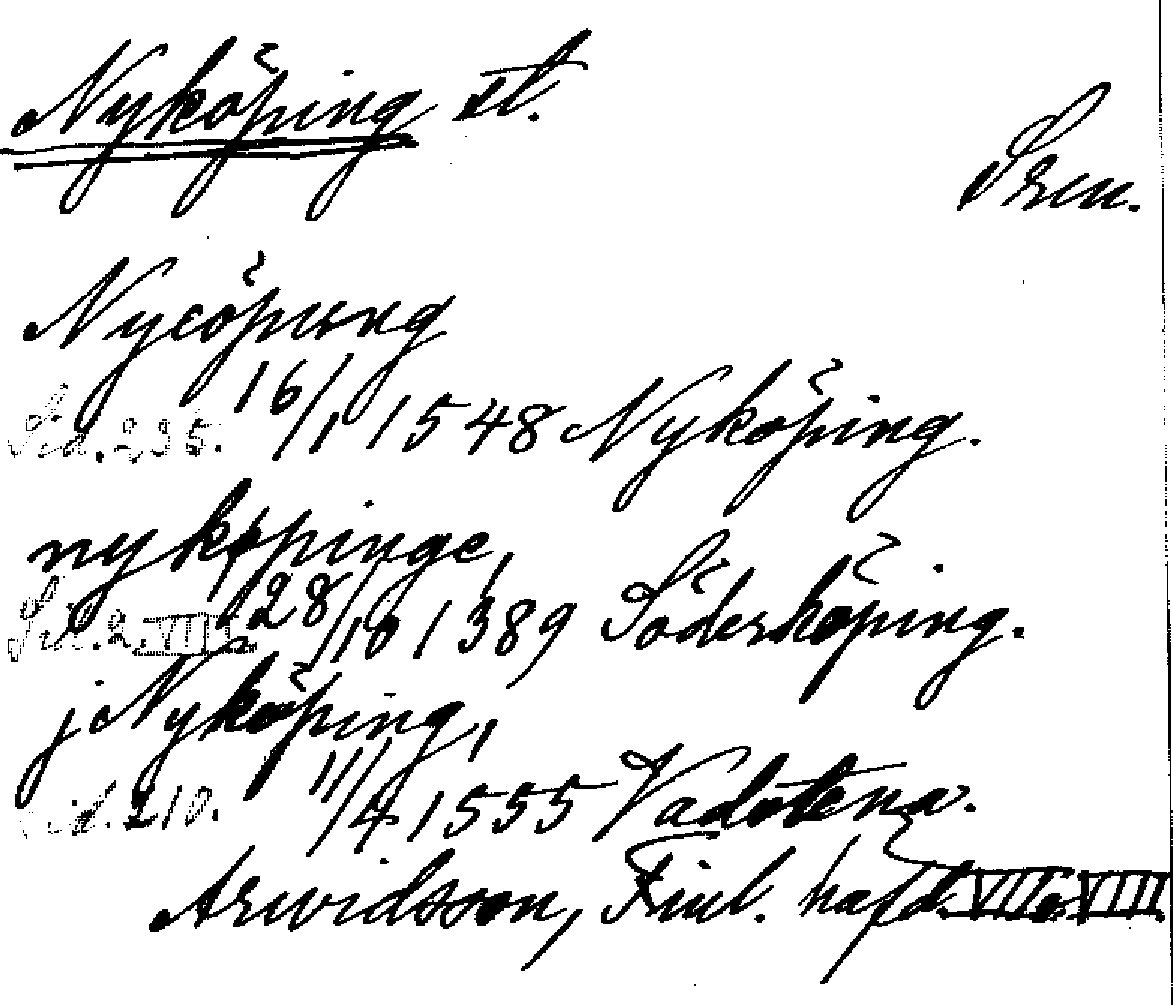 Nyköping st.
Nycöpung
Sid. 295. 16/1 1548 Nyköping.
nykøpinge,
Sid. 2. VIII. 28/10 1389 Söderköping.
j Nyköping,
Sid. 210. 11/4 1555 Vadstena.
Arwidsson, Finl. häfd. VII o VIII.